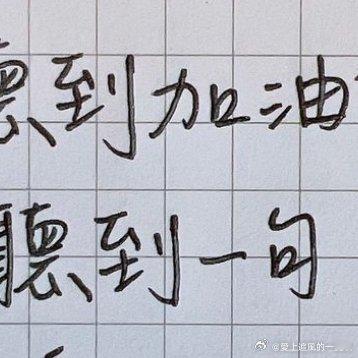 聽到加油
聽到一句
@愛上追風的一...